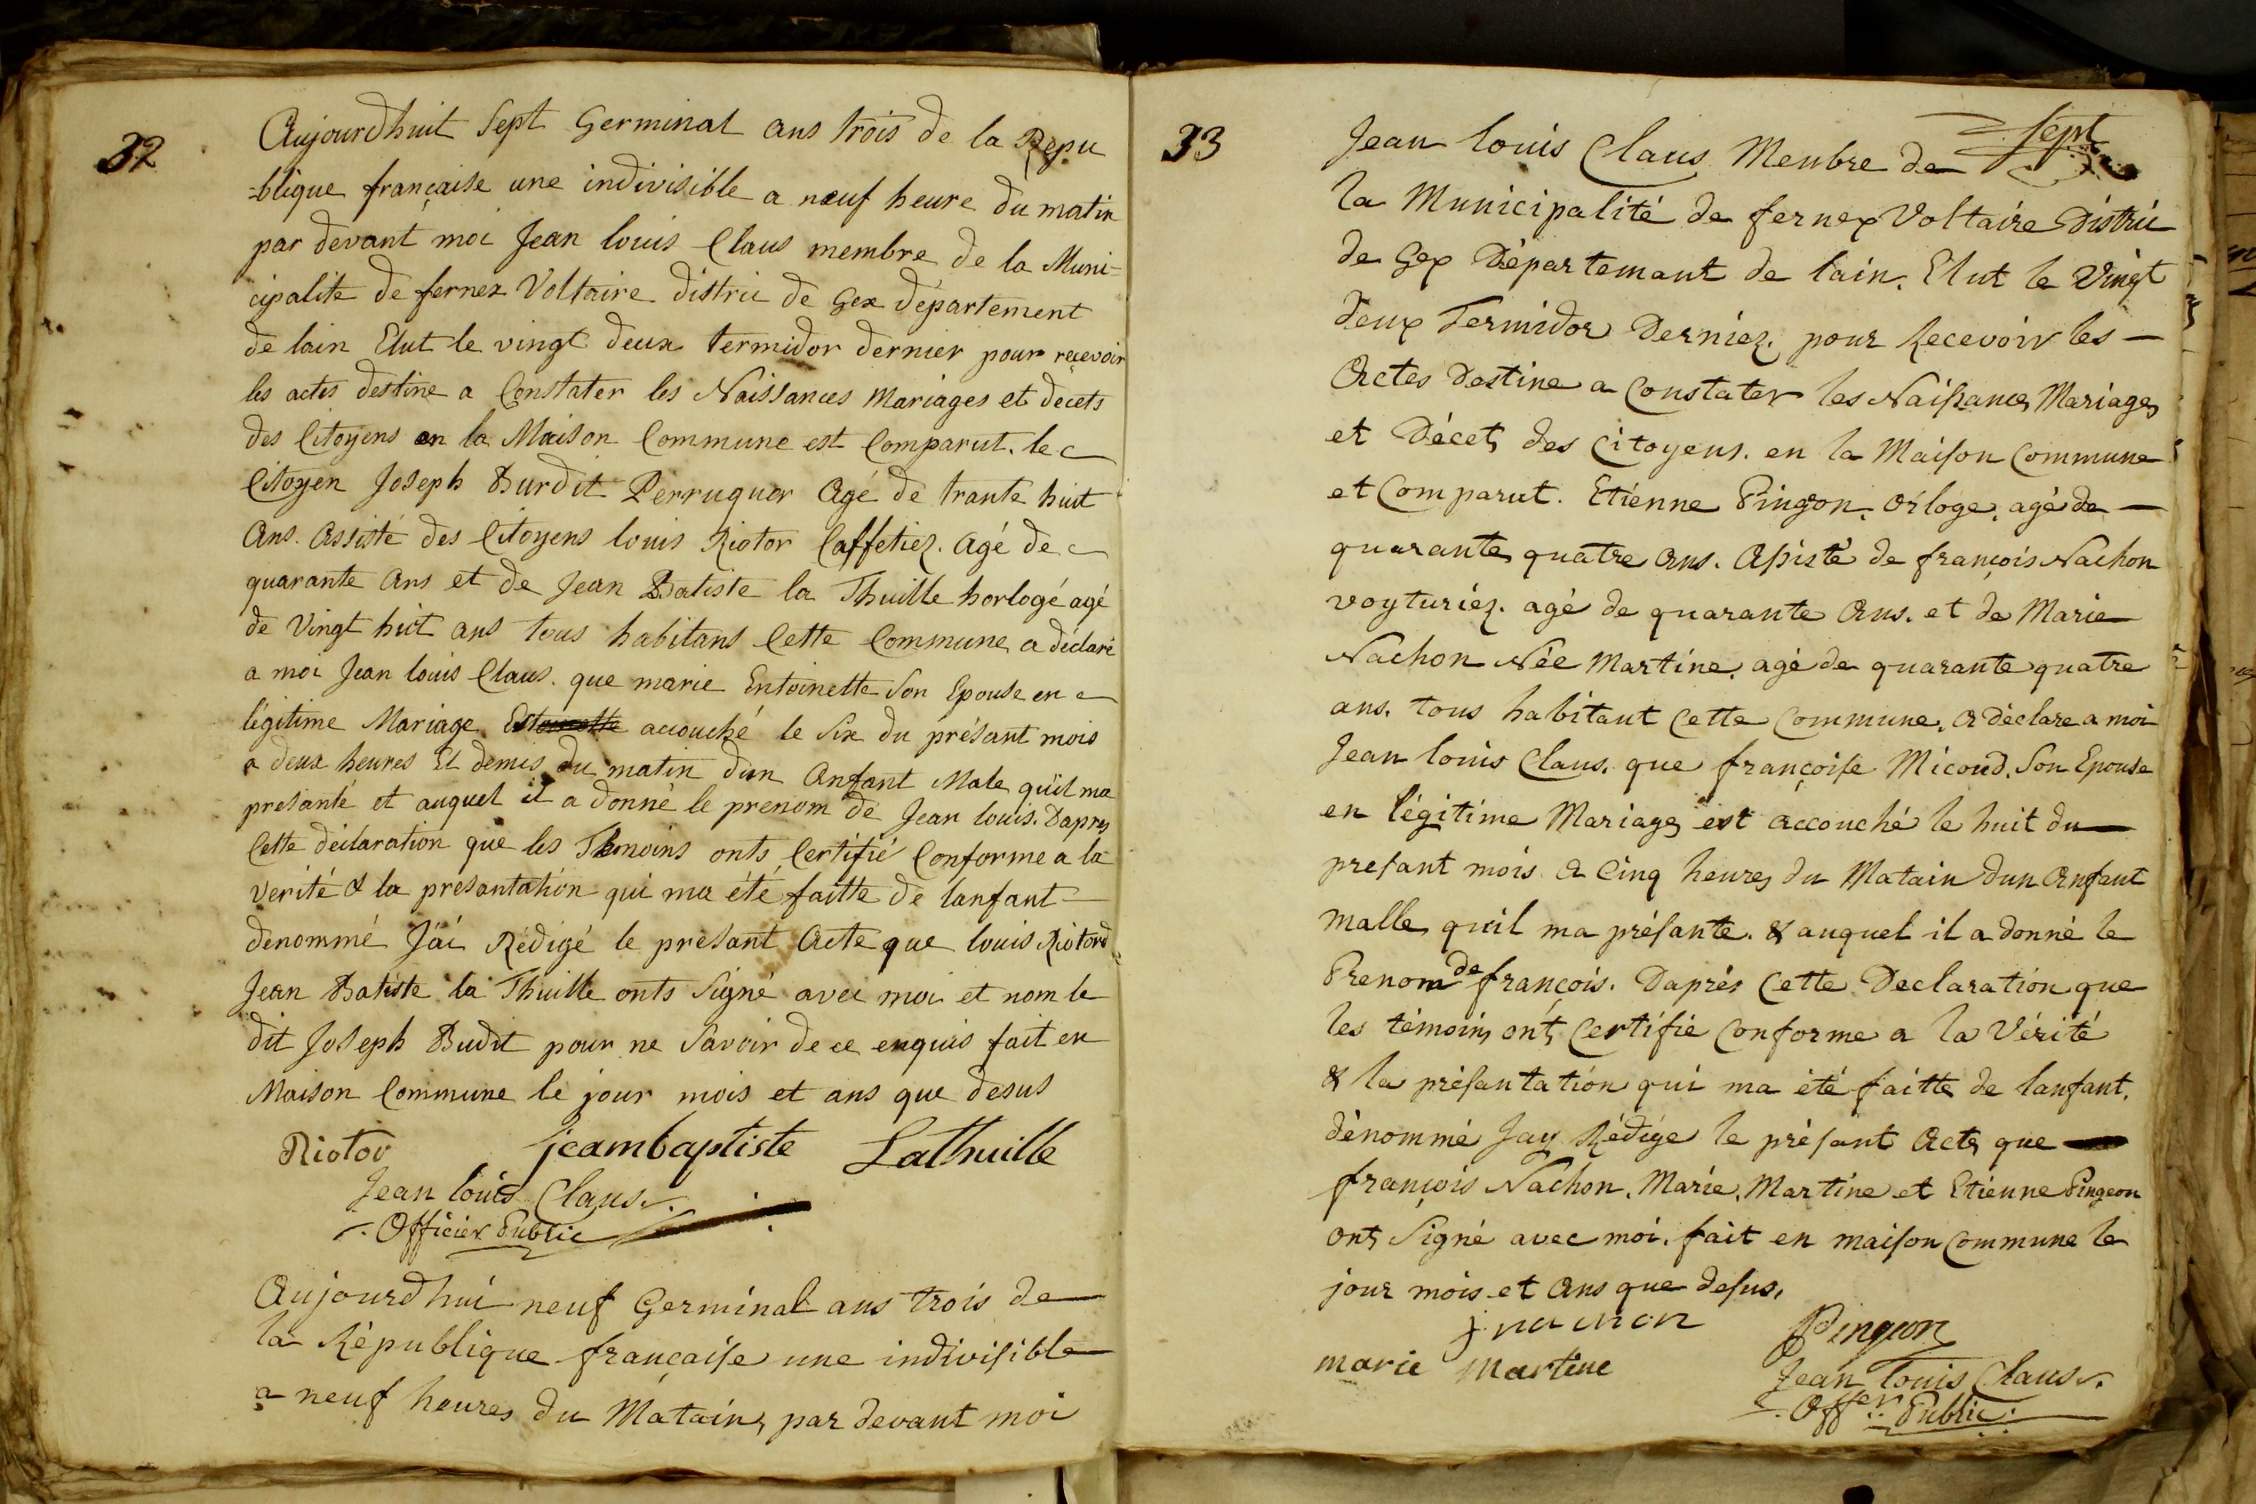 32
Aujourdhuit Sept Germinal ans trois de la Repu
-blique française une indivisible a neuf heure du matin
par devant moi Jean louis Claus membre de la Muni-
cipalite de fernex Voltaire distric de Gex département
de lain Elut le vingt deux termidor dernier pour reçevoir
les actes destine a Constater les Naissances Mariages et decets
des Citoyens en la Maison Commune est Comparut. le
Citoyen Joseph Burdit Perruquer Agé de trante huit
Ans. Assisté des Citoyens louis Riotor Caffetiez. Agé de
quarante Ans et de Jean Batiste la Thuille horlogé agé
de Vingt huit ans tous habitans Cette Commune a déclaré
a moi Jean louis Claus. que marie Entoinette Son Epouse en
légitime Mariage Est accouché le Six du présant mois
a deux heures Et demis du matin dun Anfant Male quil ma
presanté et auquel il a donné le prenom de Jean louis. Dapres
Cette déclaration que les Témoins onts Certifié Conforme a la
verité & la presantation qui ma été faitte de lanfant
denommé J'ai Rédigé le presant Acte que louis Riotord
Jean Batiste la Thuille onts Signé avec moi et nom le
dit Joseph Budit pour ne Savoir de ce enquis fait en
Maison Commune le jour mois et ans que desus
Riotor jeambaptiste Lathuille
Jean louis Claus.
Officier Public
Aujourdhui neuf Germinal ans trois de
la République française une indivisible
a neuf heures du Matain, par devant moi
33
Sept
Jean louis Claus Menbre de
la Municipalité de fernex Voltaire Distric
de Gex Département de lain. Elut le Vingt
deux Termidor Derniez. pour Recevoir les
Actes Destine a Constater les Naissances Mariages
et Décets des Citoyens. en la Maison Commune
et Comparut. Etienne Pingon. orloge. agé de
quarante quatre Ans. Assisté de françois Nachon
voyturiez. agé de quarante Ans. et de Marie
Nachon Née Martine. agé de quarante quatre
ans. tous habitant Cette Commune. A déclare a moi
Jean louis Claus. que françoise Micoud. Son Epouse
en légitime Mariage est accouché le huit du
presant mois a Cinq heures du Matain dun Anfant
malle quil ma présante. & auquel il a donné le
Prenom de françois. Daprés Cette Declaration que
les témoins onts Certifié Conforme a la Vérité
& la présantation qui ma été faitte de lanfant.
dénommé Jay Rédige le présant Acte que
françois Nachon. Marie. Martine et Etienne Pingeon
onts Signé avec moi. fait en maison Commune le
jour mois et Ans que desus.
f nachon Pingeon
marie Martine
Jean Louis Claus.
Offer Public.